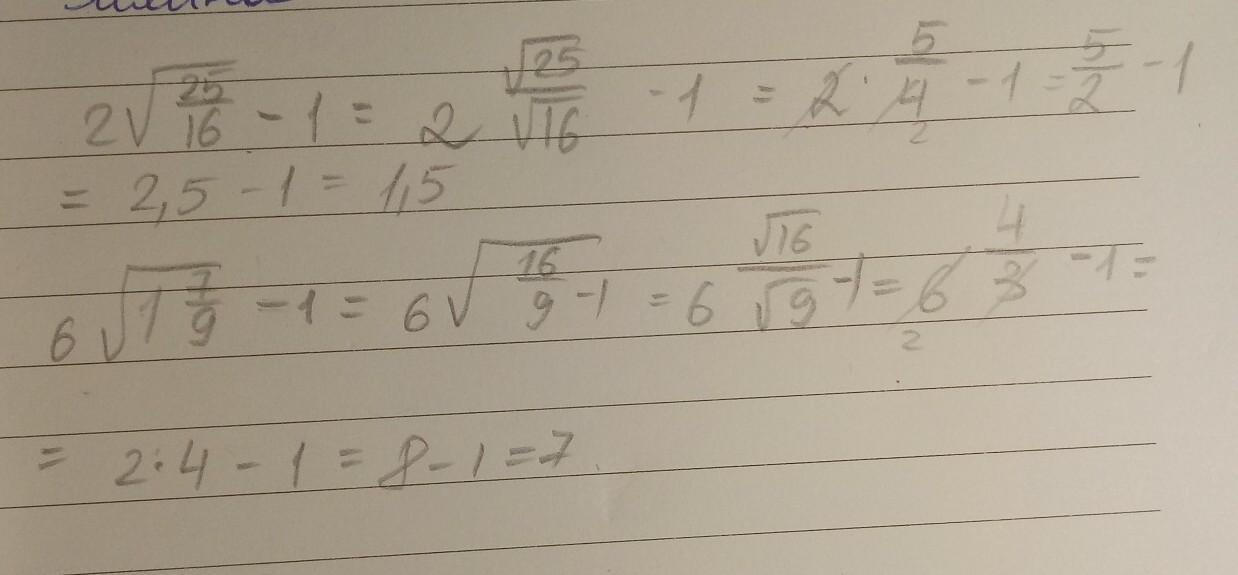 2√(25/16) - 1 = 2 √25/√16 - 1 = 2 · 5/4 2 - 1 = 5/2 - 1
= 2,5 - 1 = 1,5
6√(1 7/9) - 1 = 6√(16/9 - 1) = 6 √16/√9 - 1 = 6 2 · 4/3 - 1 =
= 2·4 - 1 = 8 - 1 = 7